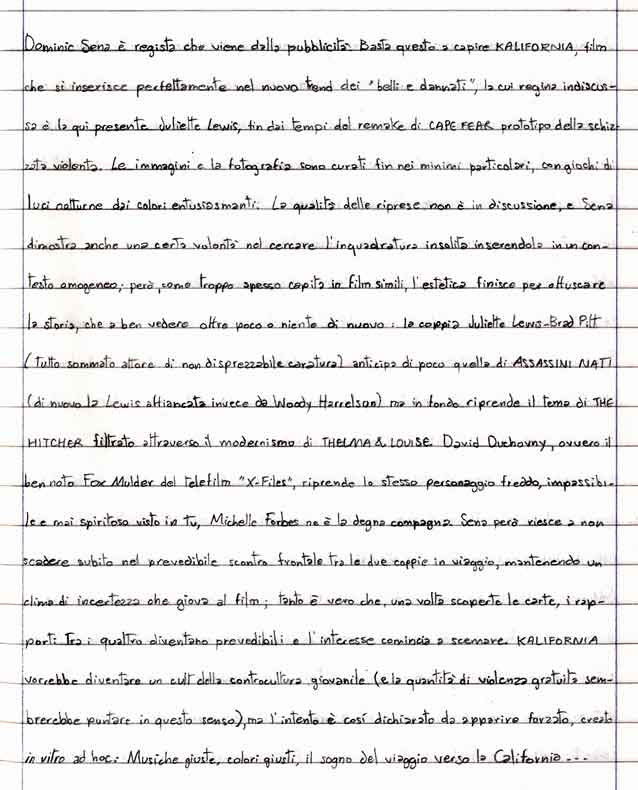 Dominic Sena è regista che viene dalla pubblicità. Basta questo a capire KALIFORNIA, film
che si inserisce perfettamente nel nuovo trend dei "belli e dannati", la cui regina indiscus-
sa è la qui presente Juliette Lewis, fin dai tempi del remake di CAPE FEAR prototipo della schiz-
zata violenta. Le immagini e la fotografia sono curati fin nei minimi particolari, con giochi di
luci notturne dai colori entusiasmanti. La qualità delle riprese non è in discussione, e Sena
dimostra anche una certa volontà nel cercare l'inquadratura insolita inserendola in un con-
testo omogeneo; però, come troppo spesso capita in film simili, l'estetica finisce per offuscare
la storia, che a ben vedere offre poco o niente di nuovo: la coppia Juliette Lewis-Brad Pitt
(tutto sommato attore di non disprezzabile caratura) anticipa di poco quella di ASSASSINI NATI
(di nuovo la Lewis affiancata invece da Woody Harrelson) ma in fondo riprende il tema di THE
HITCHER filtrato attraverso il modernismo di THELMA & LOUISE. David Duchovny, ovvero il
ben noto Fox Mulder del telefilm "X-Files", riprende lo stesso personaggio freddo, impassibi-
le e mai spiritoso visto in tv, Michelle Forbes ne è la degna compagna. Sena però riesce a non
scadere subito nel prevedibile scontro frontale tra le due coppie in viaggio, mantenendo un
clima di incertezza che giova al film; tanto è vero che, una volta scoperte le carte, i rap-
porti tra i quattro diventano prevedibili e l'interesse comincia a scemare. KALIFORNIA
vorrebbe diventare un cult della controcultura giovanile (e la quantità di violenza gratuita sem-
brerebbe puntare in questo senso), ma l'intento è così dichiarato da apparire forzato, creato
in vitro ad hoc: Musiche giuste, colori giusti, il sogno del viaggio verso la California...